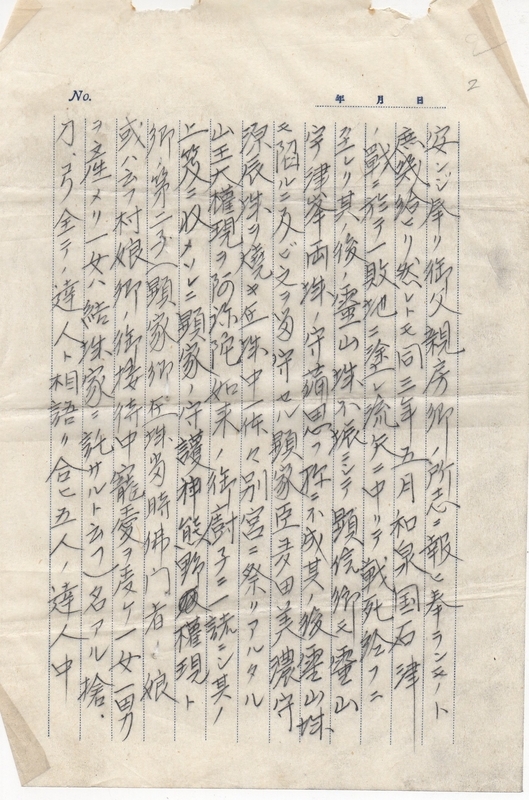 2
No.
年 月 日
安ンジ奉リ御父親房卿ノ所志ニ報ヒ奉ランコト
庶幾給ヒリ然レトモ同三年五月和泉国石津
ノ戦ニ於テ一敗地ニ塗レ流矢ニ中リテ戦死給フニ
至レリ其ノ後霊山城不振ニシテ顕信卿モ霊山
宇津峯両城ノ守備思フ様ニ不成其ノ後霊山城
モ陥ルニ及ビ之ヲ留守セル顕家臣多田美濃守
源辰城ヲ焼キ城中一体々別宮ニ祭リアルタル
山王大権現ヲ阿弥陀如来ノ御厨子ニ一諸ニシ其ノ
上笈ニ収メソレニ顕家ノ守護神熊野権現ト
卿ノ第二子(顕家卿在城当時佛門者ノ娘
或ハ云フ村娘卿ノ御接待中寵愛ヲ受ケ一女一男
ヲ産メリ一女ハ結城家ニ託サルト云フ)名アル槍、
刀、弓全テノ達人ト相語リ合ヒ五人ノ達人中